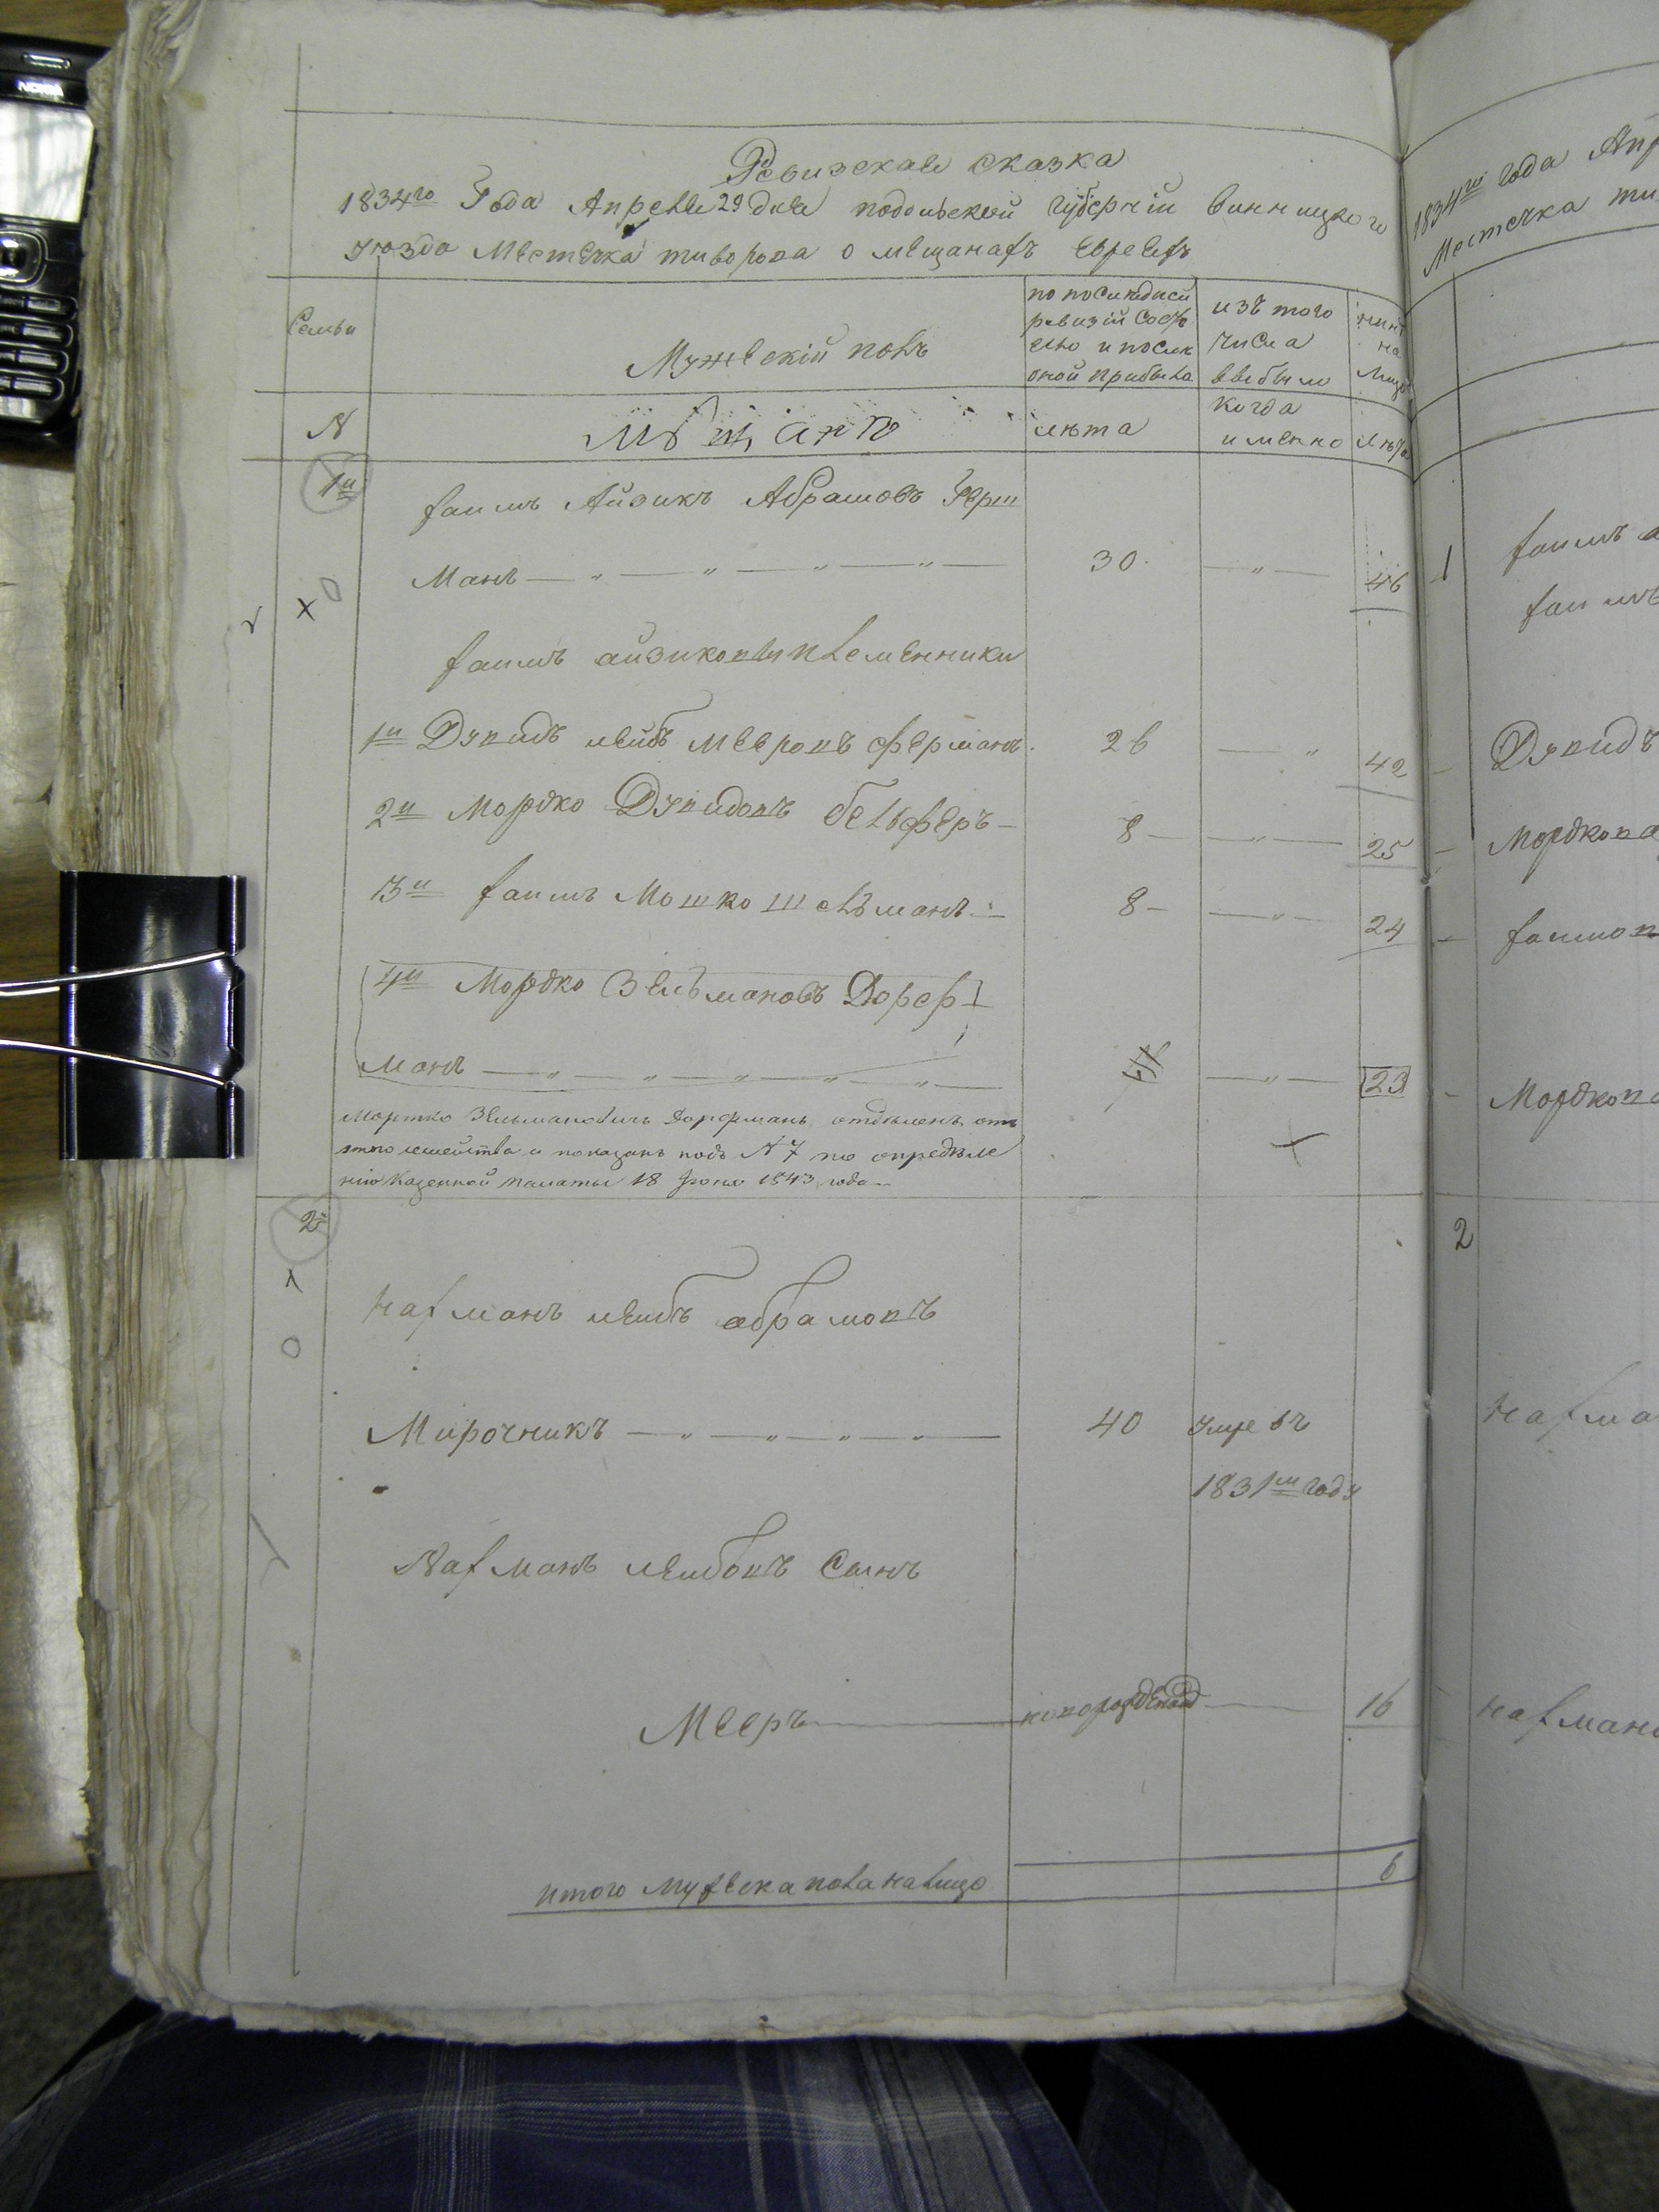 NOKIA
Ревизская сказка
1834го Года Апреля 29 дня подольской губернии винницкого
уюзда Местечка тиворова о мещанахъ евреехъ
Семьи
Мужескій полъ
по последней
ревизіи состо
яло и после
оной прибыло
изъ того
числа
выбыло
ныне
на
лицо
N
Мѣщанѣ
лѣта
когда
именно
лѣта
1й
Хаимъ Айзикъ Абрамовъ Герш
Манъ
30
46
Хаимъ айзиковы племенники
1й Дувидъ лейбъ мееровъ ферманъ
26
42
2й Мордко Дувидовъ бельферъ
8
25
3й Хаимъ Мошко шельманъ
8
24
4й Мордко Зельмановъ Дорф
манъ
23
Мортко Зельмановичъ Дорфманъ отдѣленъ отъ
этого семейства и показанъ подъ N 7 по опредѣле
нію Казенной палаты 18 Июня 1843 года
2й
Нахманъ лейбъ абрамовъ
Мирочникъ
40
Умре въ
1831м году
Нахманъ лейбовъ Сынъ
Мееръ
новорожденой
16
итого мужеска пола налицо
6
1834го года Апр
Местечка ти
1
Хаимъ а
Хаимъ
Дувидъ
Мордкова
Хаимов
Мордково
2
Нахма
Нахмано